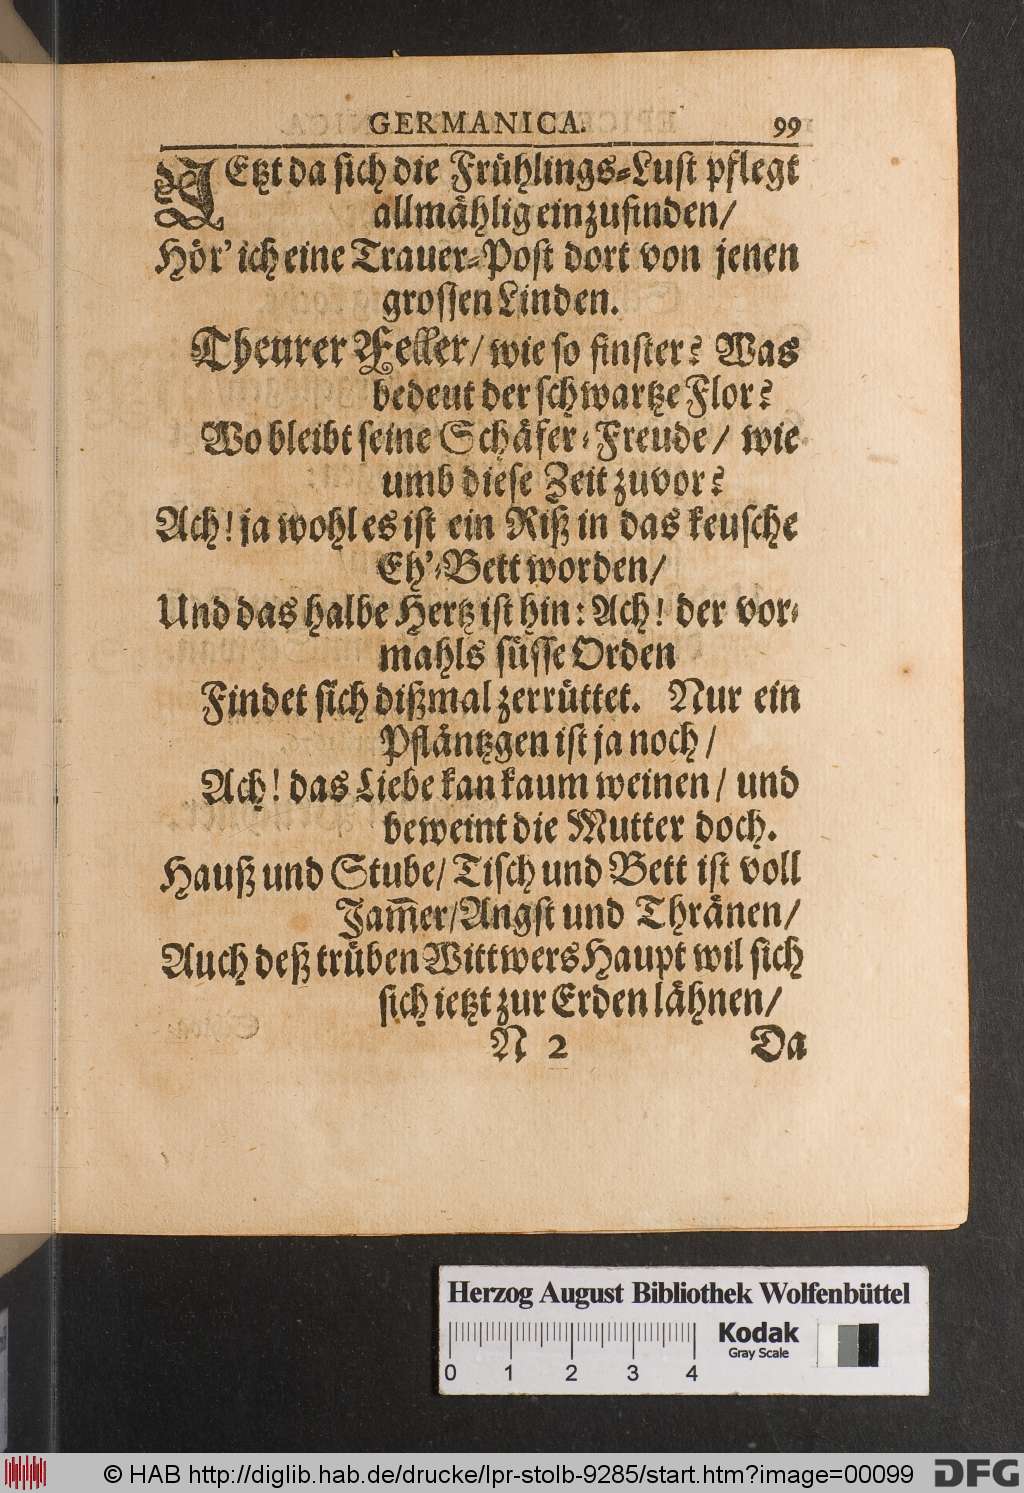 GERMANICA. 99
JEtzt da sich die Frühlings-Lust pflegt
allmählig einzufinden/
Hör' ich eine Trauer-Post dort von jenen
grossen Linden.
Theurer Feller/ wie so finster? Was
bedeut der schwartze Flor?
Wo bleibt seine Schäfer-Freude/ wie
umb diese Zeit zuvor?
Ach! ja wohl es ist ein Riß in das keusche
Eh'-Bett worden/
Und das halbe Hertz ist hin: Ach! der vor-
mahls süsse Orden
Findet sich dißmal zerrüttet. Nur ein
Pfläntzgen ist ja noch/
Ach! das Liebe kan kaum weinen/ und
beweint die Mutter doch.
Hauß und Stube/ Tisch und Bett ist voll
Jam̅er/ Angst und Thränen/
Auch deß trüben Wittwers Haupt wil sich
sich ietzt zur Erden lähnen/
N 2 Da
Herzog August Bibliothek Wolfenbüttel
Kodak
Gray Scale
0 1 2 3 4
© HAB http://diglib.hab.de/drucke/lpr-stolb-9285/start.htm?image=00099
DFG